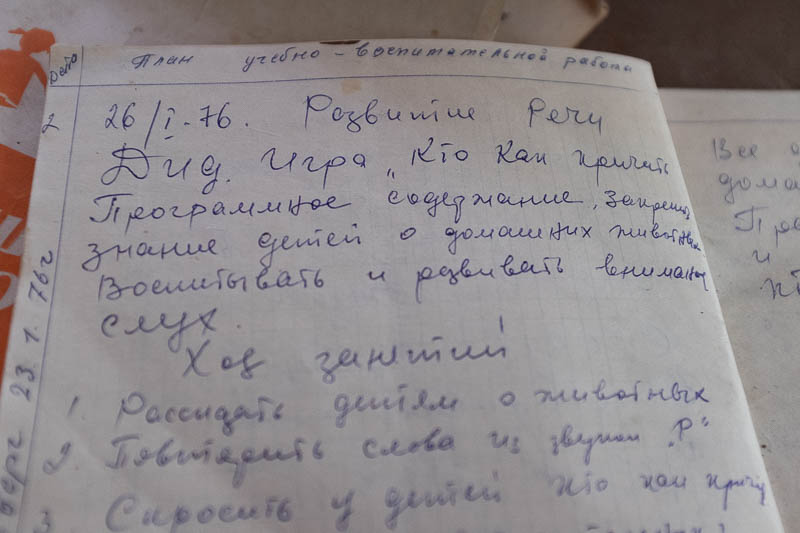 Дата
План учебно-воспитательной работы
2 26/I-76. Развитие Речи
Дид. Игра „Кто Как кричить
Программное содержание. Закрепи
знание детей о домашних животных
Воспитывать и развивать внимание
слух.
Ход занятий
1. Рассказать детям о животных
2. Повторить слова из звуком „Р"
3 Спросить у детей кто как кричи
23.1.76г
Все
дома
и